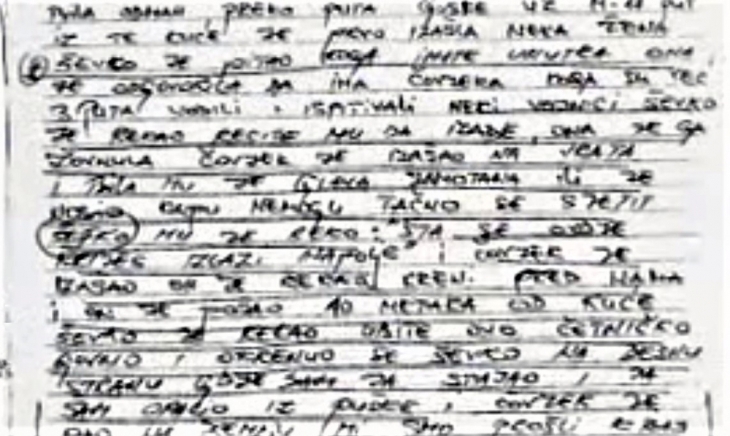 BILA ODMAH, PREKO PUTA
IZ TE KUĆE JE PRVO IZAŠLA NEKA ŽENA
ŠEVKO JE PITAO KOGA IMATE UNUTRA ONA
JE ODGOVORILA DA IMA ČOVJEKA KOGA SU VEĆ
3 PUTA VODILI I ISPITIVALI NEKI VOJNICI ŠEVKO
JE REKAO RECITE MU DA IZAĐE, ONA JE GA
ZOVNULA ČOVJEK JE IZAŠAO NA VRATA
I BILA MU JE GLAVA ZAMOTANA ILI JE
NOSIO KAPU NEMOGU TAČNO SE SJETIT
ŠEVKO MU JE REKO: "ŠTA SE OVDJE
IZLAZI NAPOLJE" I ČOVJEK JE
IZAŠAO ON JE REKAO KRENI PRED NAMA
I ON JE POŠAO 10 METARA OD KUĆE
ŠEVKO JE REKAO UBITE OVO ČETNIČKO
GOVNO I OKRENUO SE ŠEVKO NA DESNU
STRANU GDJE SAM JA STAJAO I JA
SAM OPALIO IZ PUŠKE, ČOVJEK JE
PAO NA ZEMLJU MI SMO PROŠLI